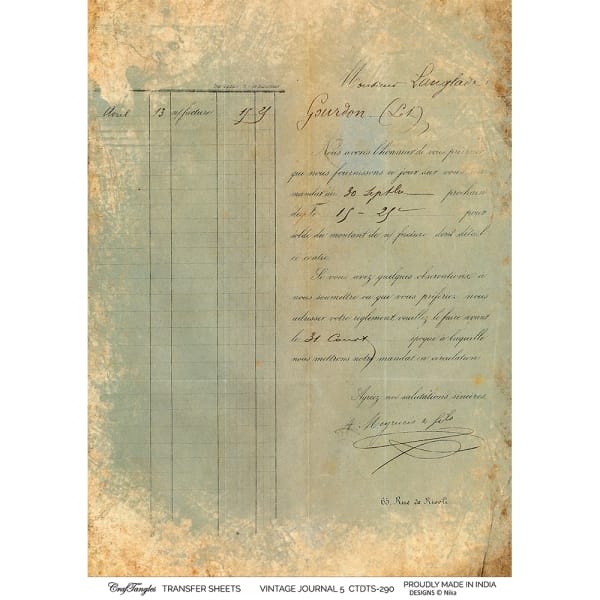 Monsieur Langlade
Avril 13 n/ facture 15 25
Gourdon (Lot)
Nous avons l'honneur de vous prévenir
que nous fournissons ce jour sur vous
mandat au 30 Septbre prochain
de f. 15 - 25 pour
solde du montant de n/ facture dont détail
ci contre.
Si vous avez quelques observations à
nous soumettre ou que vous préfériez nous
adresser votre règlement veuillez le faire avant
le 31 Courant époque à laquelle
nous mettrons notre mandat en circulation
Agréez nos salutations sincères,
& fils
65, Rue de Rivoli
CrafTangles TRANSFER SHEETS VINTAGE JOURNAL 5 CTDTS-290 PROUDLY MADE IN INDIA
DESIGNS © Nika